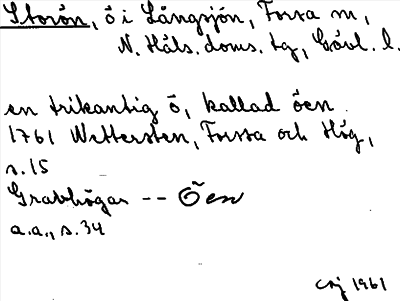 Storön, ö i Långsjön, Forsa sn,
N. Häls. doms. tg, Gävl. l.
en trikantig ö, kallad öen
1761 Wettersten, Forssa och Hög,
s.15
Gravhögar -- Öen
a.a., s.34
1961